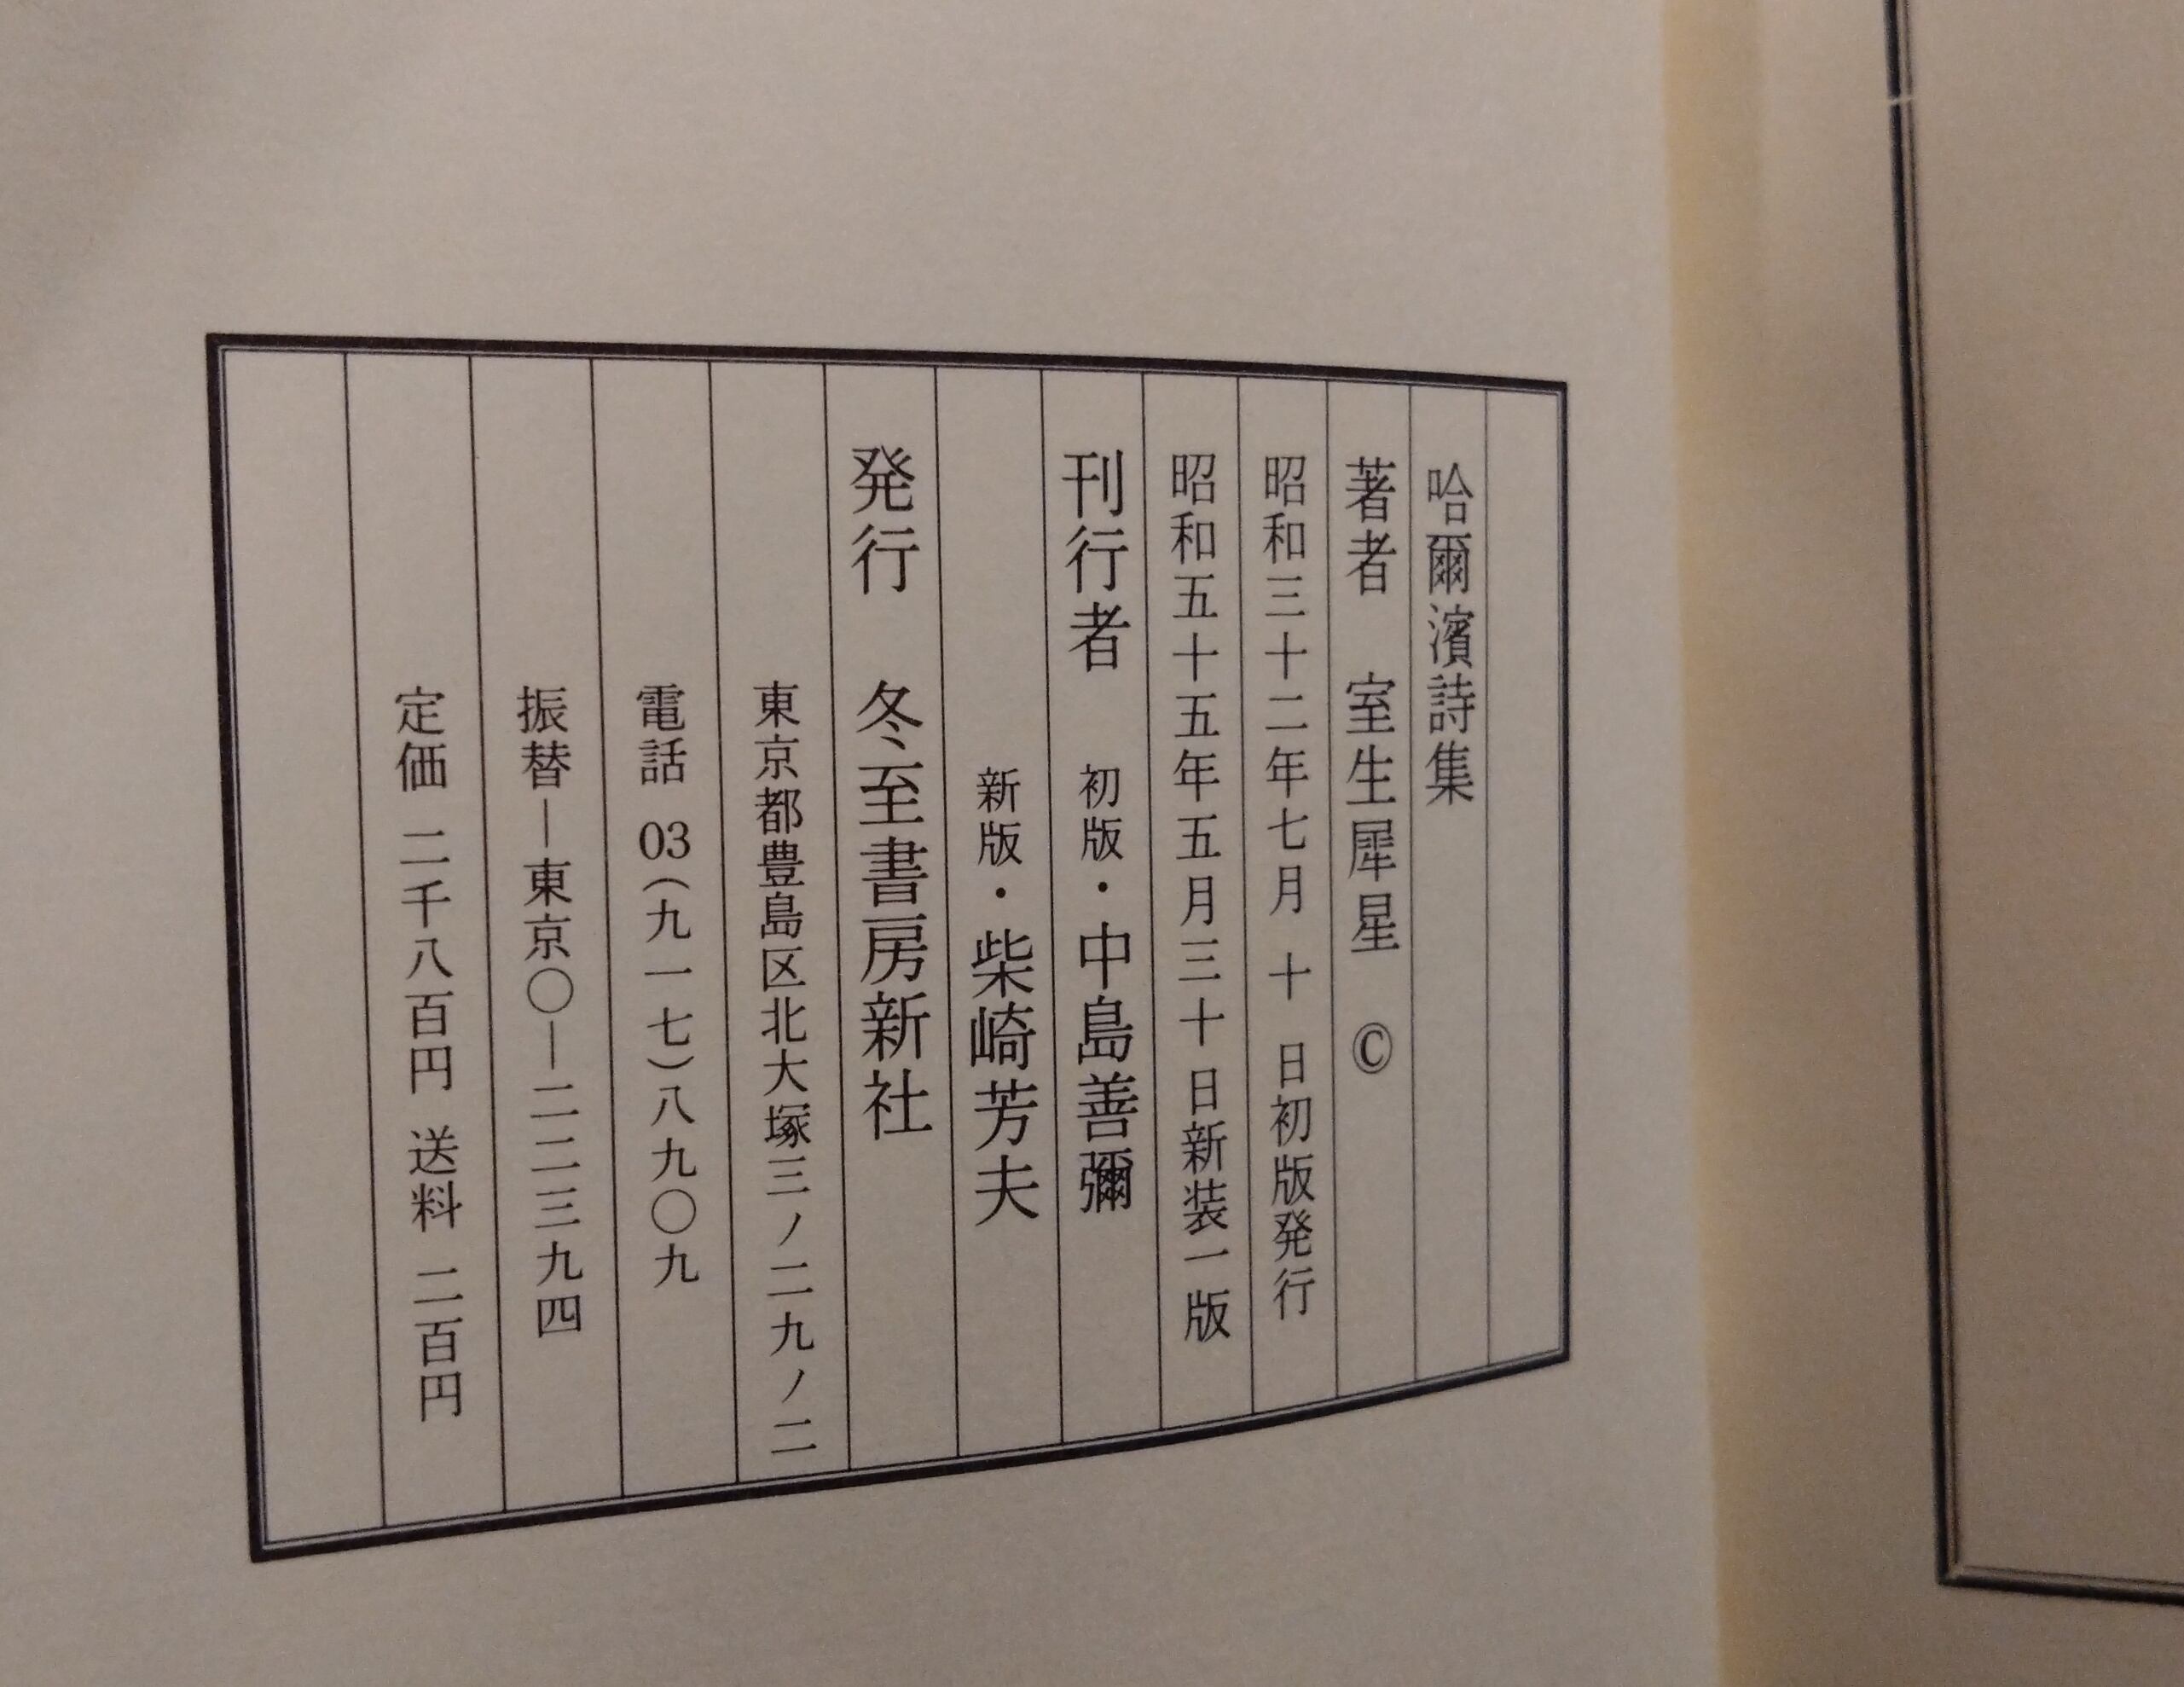 哈爾濱詩集
著者　室生犀星　©
昭和三十二年七月 十 日初版発行
昭和五十五年五月三十日新装一版
刊行者　初版・中島善彌
新版・柴崎芳夫
発行　冬至書房新社
東京都豊島区北大塚三ノ二九ノ二
電話 03(九一七)八九〇九
振替―東京〇―二二三九四
定価 二千八百円 送料 二百円